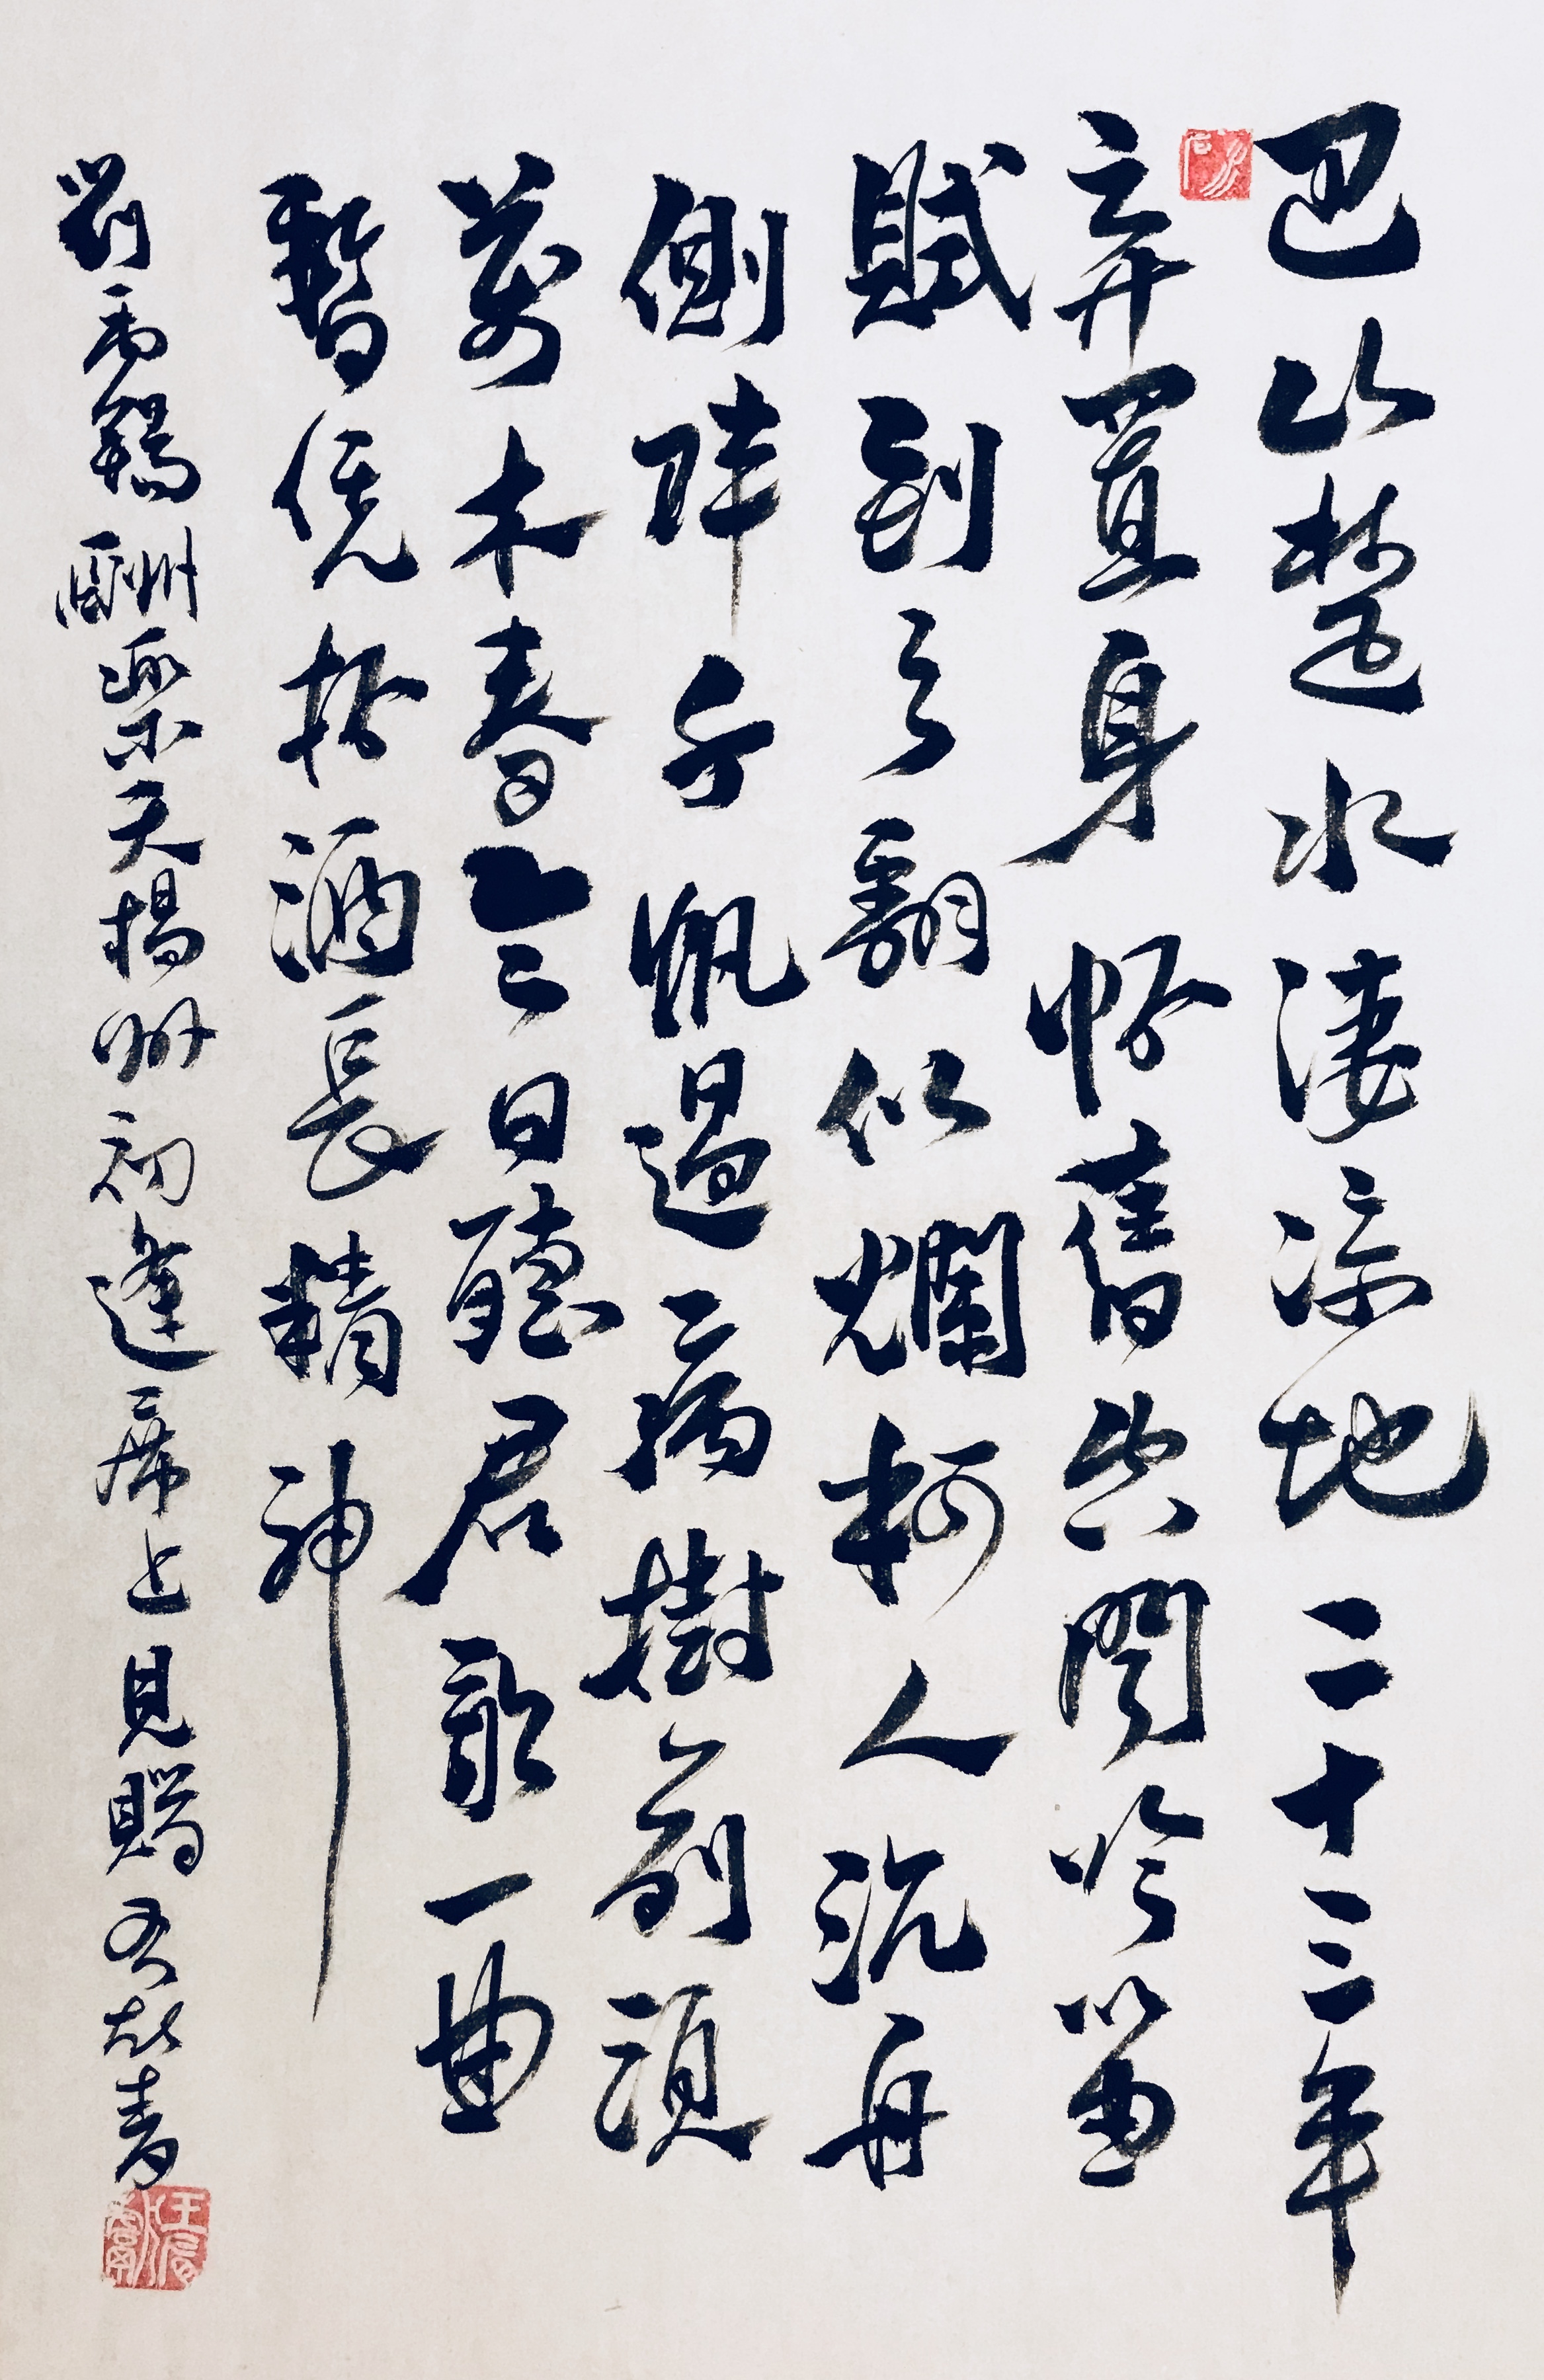 巴山楚水淒涼地二十三年
弃置身怀舊空聞吟笛
賦到乡翻似爛柯人沉舟
側畔千帆過病樹前頭
萬木春今日聽君歌一曲
暫凭杯酒長精神
劉禹錫酬樂天揚州初逢席上見贈書